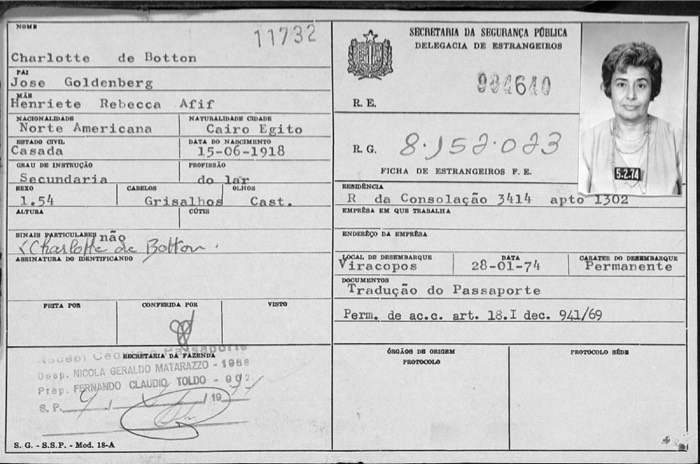 NOME
11732
Charlotte de Botton
PAI
Jose Goldenberg
MÃE
Henriete Rebecca Afif
NACIONALIDADE NATURALIDADE CIDADE
Norte Americana Cairo Egito
ESTADO CIVIL DATA DO NASCIMENTO
Casada 15-06-1918
GRAU DE INSTRUÇÃO PROFISSÃO
Secundaria do lar
SEXO CABELOS OLHOS
1.54 Grisalhos Cast.
ALTURA CÚTIS
SINAIS PARTICULARES não
Charlotte de Botton
ASSINATURA DO IDENTIFICANDO
FEITA POR CONFERIDA POR VISTO
SECRETARIA DA FAZENDA
Desp. NICOLA GERALDO MATARAZZO - 1968
Prep. FERNANDO CLAUDIO TOLDO - 992
S. P.
S. G. - S.S.P. - Mod. 18-A
SECRETARIA DA SEGURANÇA PÚBLICA
DELEGACIA DE ESTRANGEIROS
R. E. 904640
R. G. 8.152.023
FICHA DE ESTRANGEIROS F. E.
5.2.74
RESIDÊNCIA
R da Consolação 3414 apto 1302
EMPRÊSA EM QUE TRABALHA
ENDERÊÇO DA EMPRÊSA
LOCAL DE DESEMBARQUE CARATER DO DESEMBARQUE
Viracopos 28-01-74 Permanente
DOCUMENTOS
Tradução do Passaporte
Perm. de ac.c. art. 18.I dec. 941/69
ÓRGÃOS DE ORIGEM PROTOCOLO SÉDE
PROTOCOLO